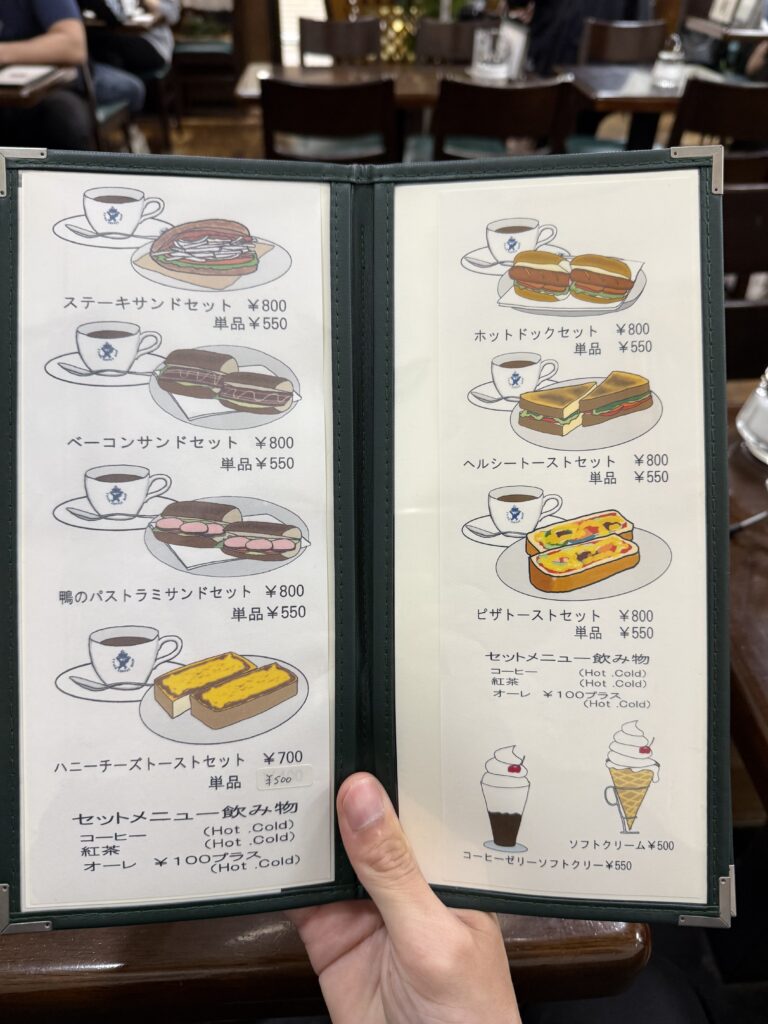 ステーキサンドセット ¥800
単品¥550
ベーコンサンドセット ¥800
単品¥550
鴨のパストラミサンドセット ¥800
単品¥550
ハニーチーズトーストセット ¥700
単品 ¥500
セットメニュー飲み物
コーヒー (Hot .Cold)
紅茶 (Hot .Cold)
オーレ ¥100プラス
(Hot .Cold)
ホットドックセット ¥800
単品 ¥550
ヘルシートーストセット ¥800
単品 ¥550
ピザトーストセット ¥800
単品 ¥550
セットメニュー飲み物
コーヒー (Hot .Cold)
紅茶 (Hot .Cold)
オーレ ¥100プラス
(Hot .Cold)
ソフトクリーム¥500
コーヒーゼリーソフトクリー¥550